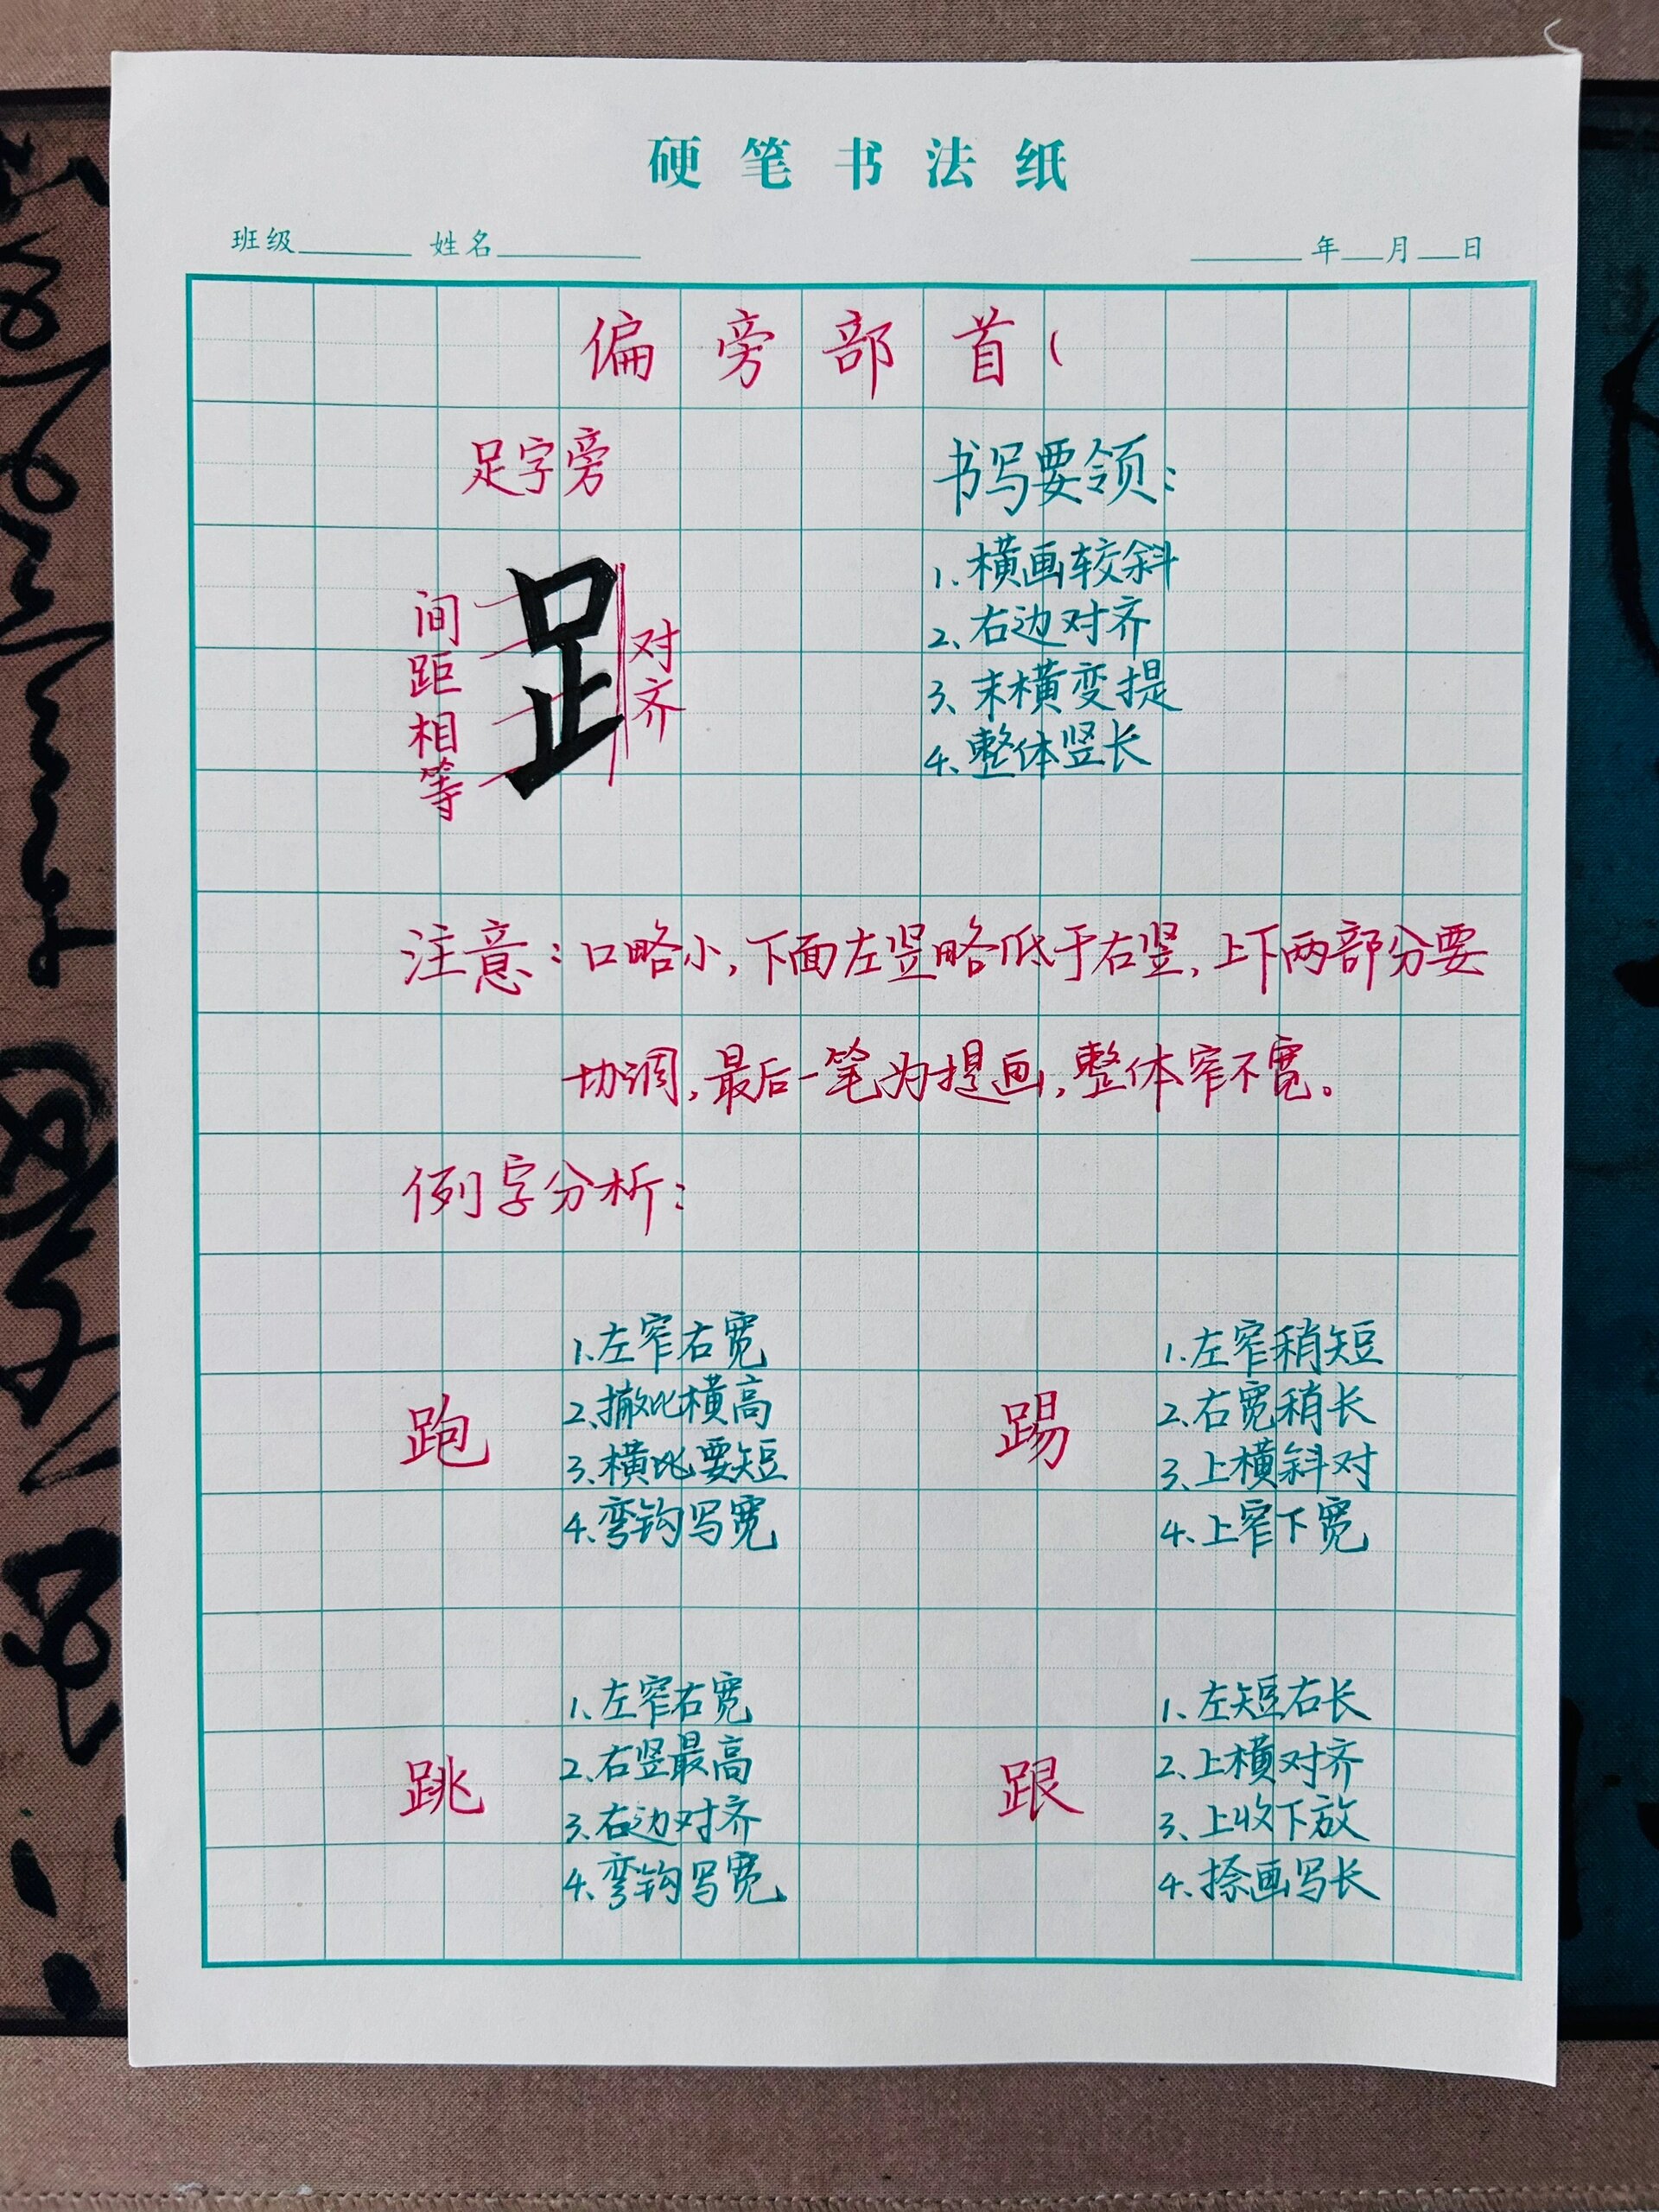 硬笔书法纸
班级 姓名 年 月 日
偏旁部首(
足字旁
间距相等
对齐
书写要领:
1、横画较斜
2、右边对齐
3、末横变提
4、整体竖长
注意:口略小,下面左竖略低于右竖,上下两部分要
协调,最后一笔为提画,整体窄不宽。
例字分析:
跑
1、左窄右宽
2、撇比横高
3、横比要短
4、弯钩写宽
踢
1、左窄稍短
2、右宽稍长
3、上横斜对
4、上窄下宽
跳
1、左窄右宽
2、右竖最高
3、右边对齐
4、弯钩写宽
跟
1、左短右长
2、上横对齐
3、上收下放
4、捺画写长